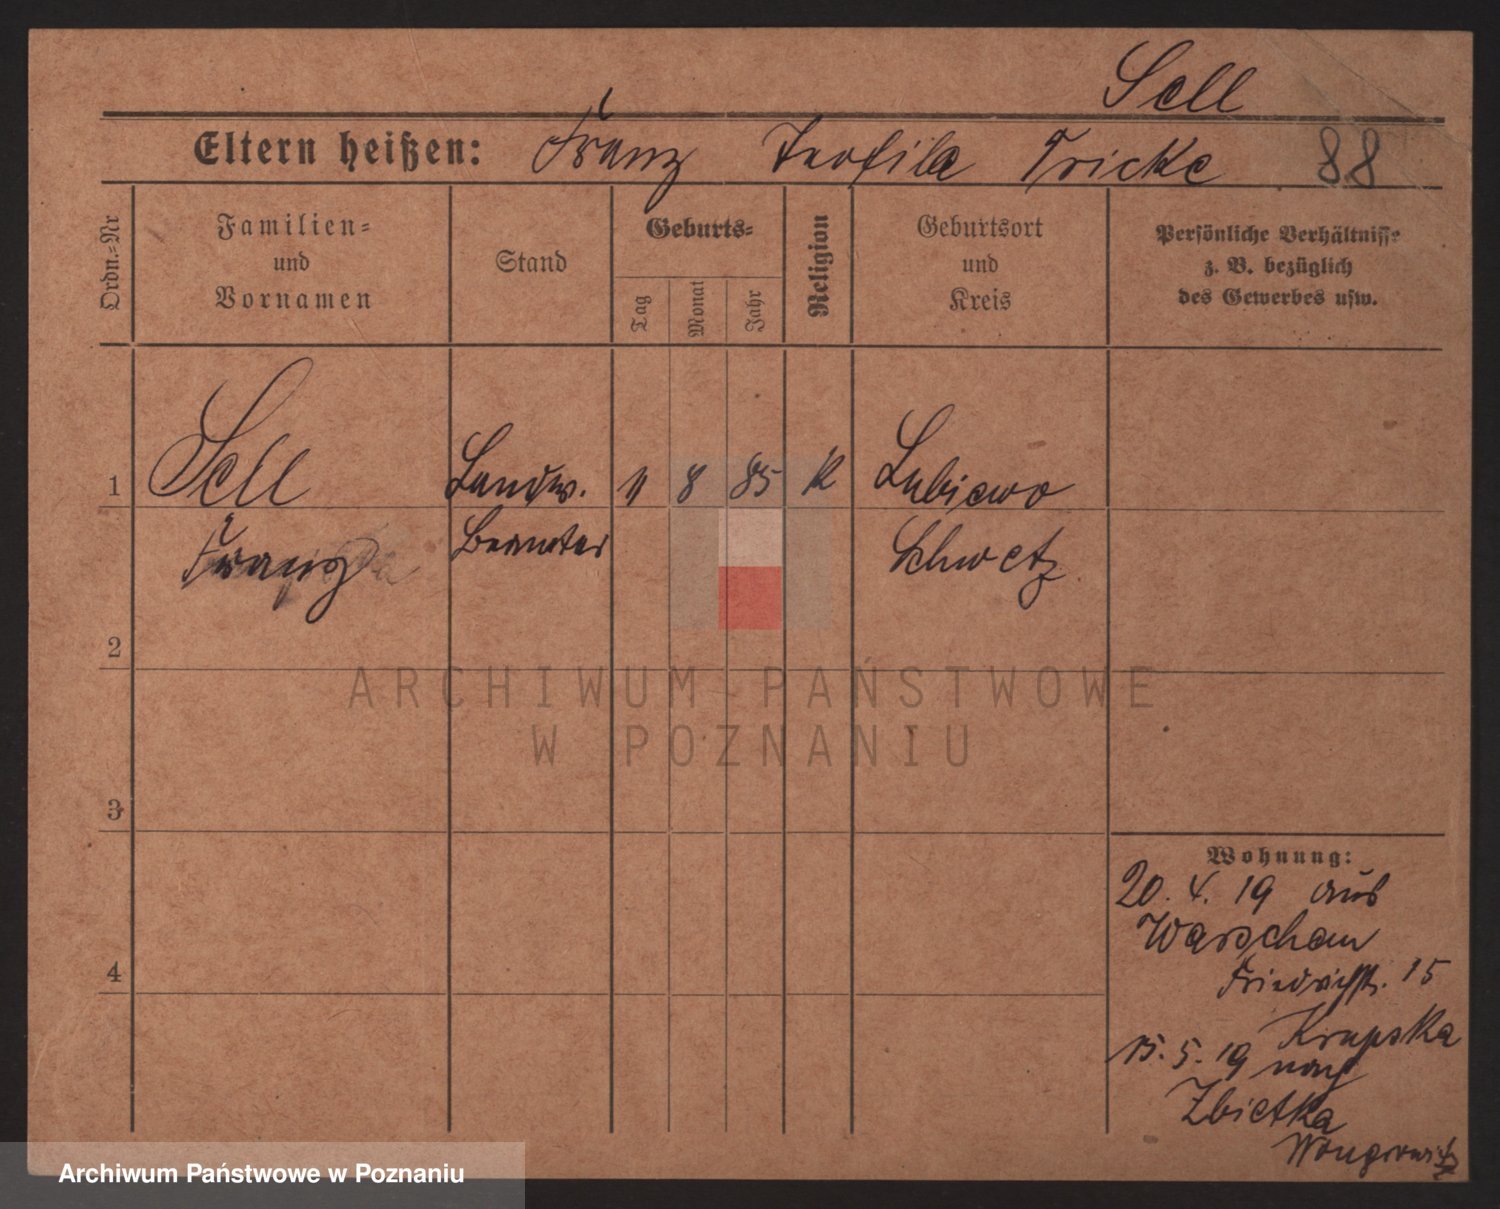 Sell
Eltern heißen: Franz Teofila Fricke 88
Ordn.=Nr
Familien=
und
Vornamen
Stand
Geburts=
Tag
Monat
Jahr
Religion
Geburtsort
und
Kreis
Persönliche Verhältnisse
z. B. bezüglich
des Gewerbes usw.
1 Sell Landw. 11 8 85 K Lubiewo
Franz Beamter Schwetz
2
3
4
Wohnung:
20. 4. 19 aus
Warschau
Friedrichstr. 15
Krupska
15. 5. 19 nach
Zbietka
Wongrowitz
ARCHIWUM PAŃSTWOWE
W POZNANIU
Archiwum Państwowe w Poznaniu